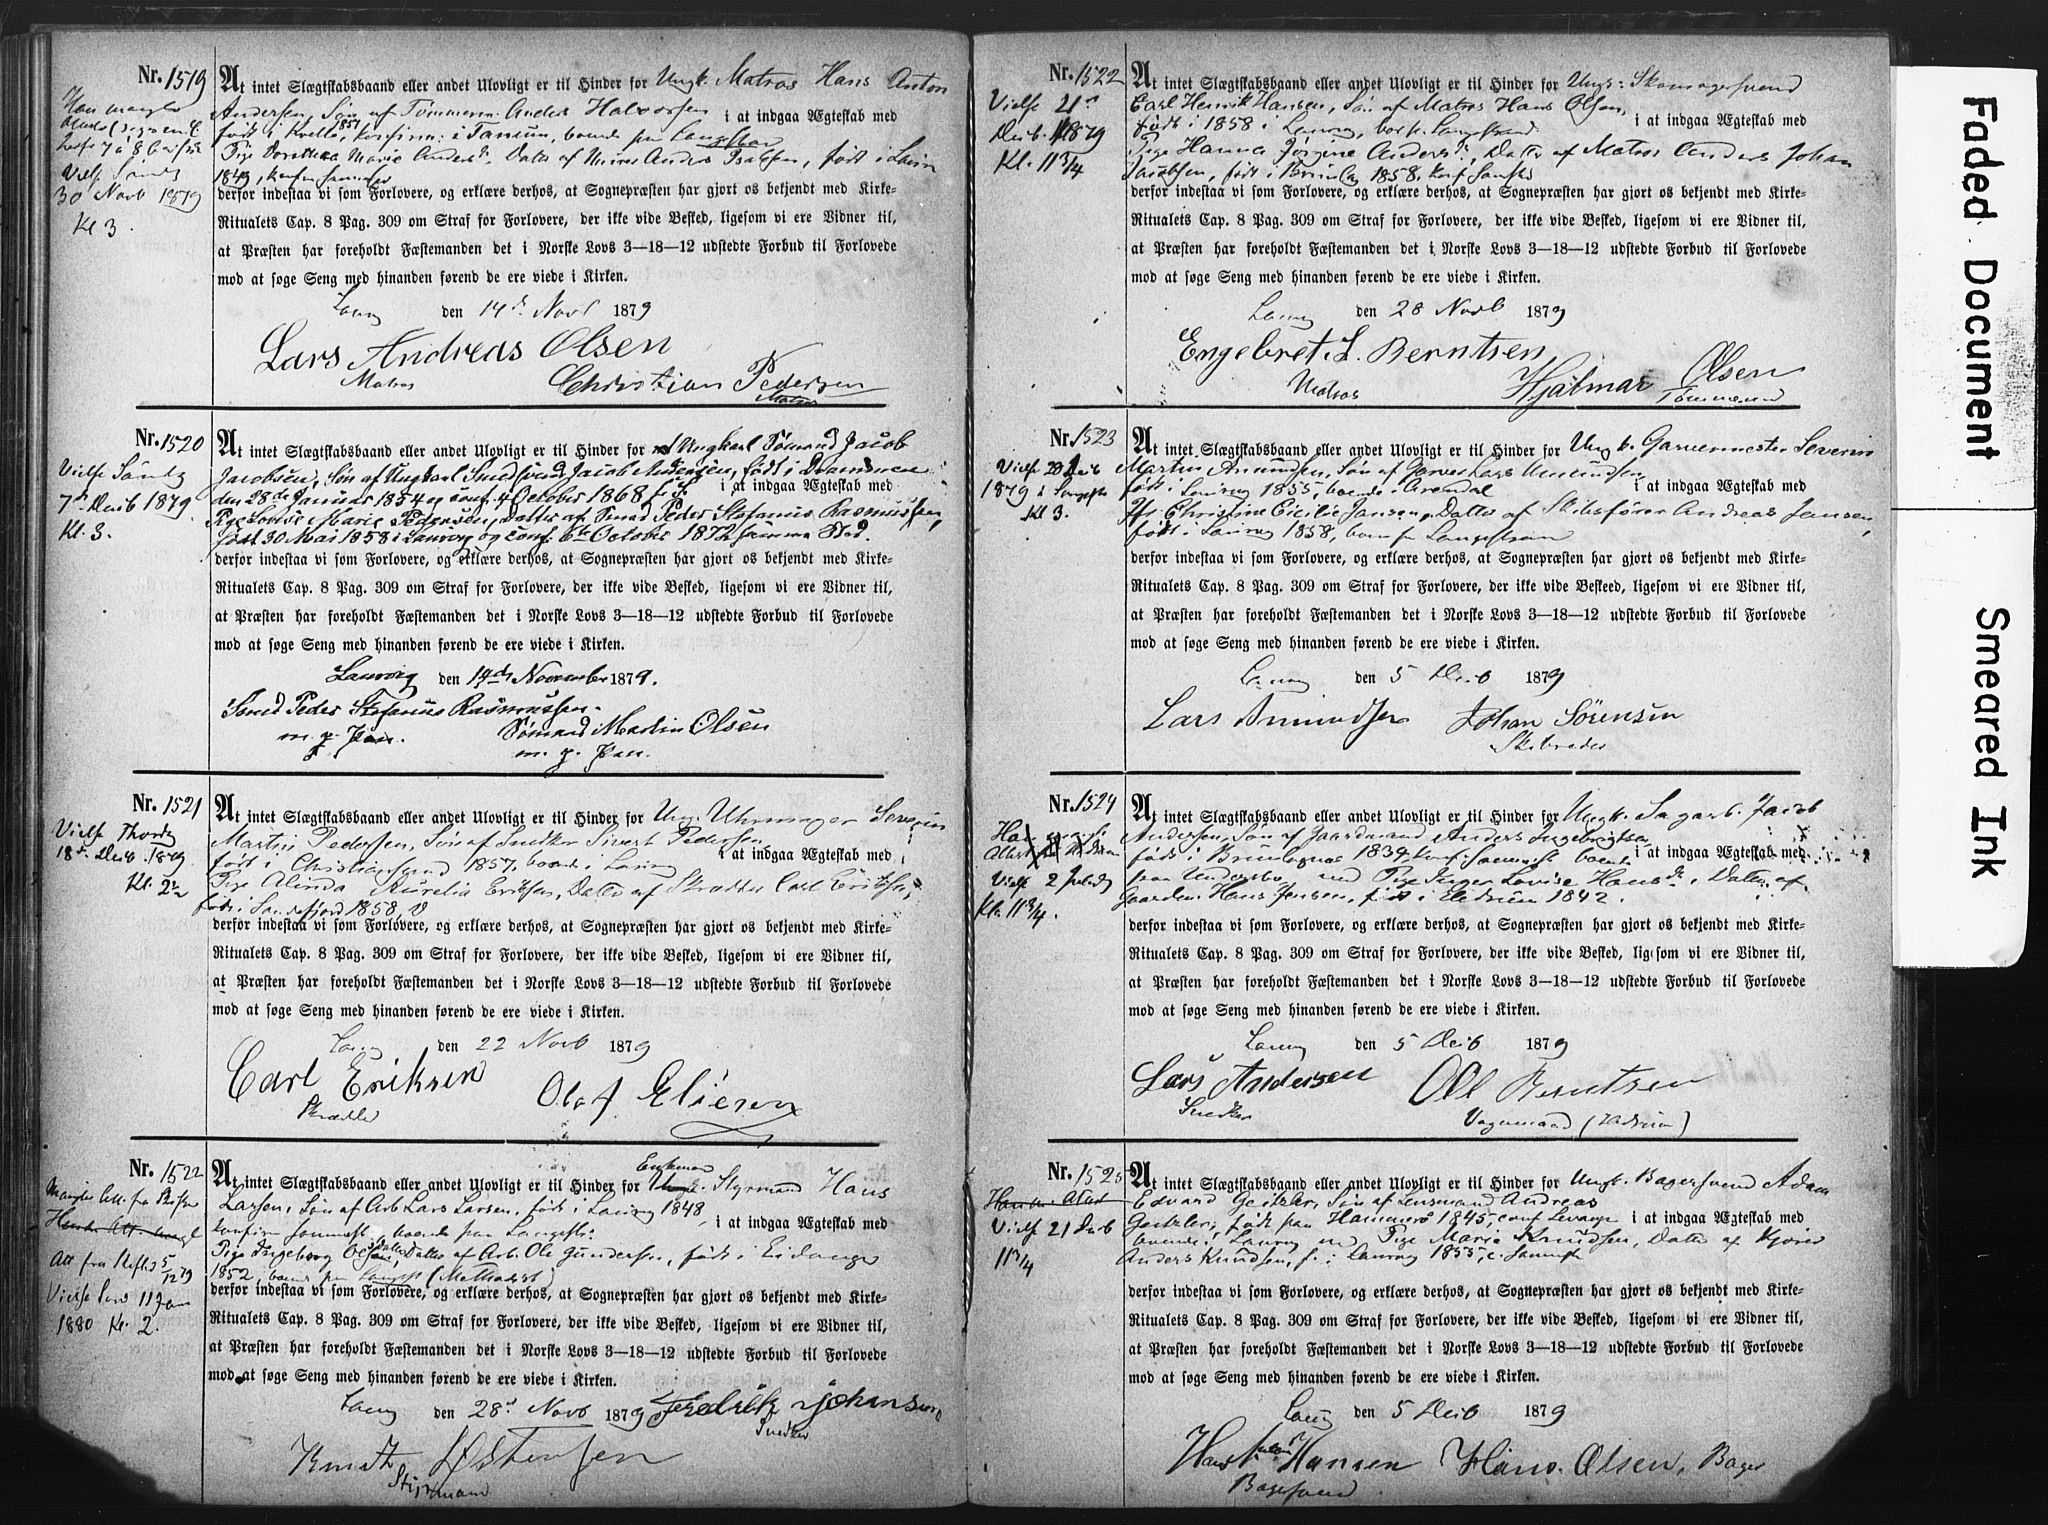 Nr. 1519
Vielse Sönd
30 Novb 1879
Kl 3.
At intet Slægtskabsbaand eller andet Ulovligt er til Hinder for Ungk. Matros Hans Anton
Andersen, Søn af Tømmerm. Anders Halvorsen
født i 1851, konfirm. i boende paa i at indgaa Ægteskab med
Pige Dorothea Marie Anders Datter af Anders født i
1849,
derfor indestaa vi som Forlovere, og erklære derhos, at Sognepræsten har gjort os bekjendt med Kirke-
Ritualets Cap. 8 Pag. 309 om Straf for Forlovere, der ikke vide Besked, ligesom vi ere Vidner til,
at Præsten har foreholdt Fæstemanden det i Norske Lovs 3—18—12 udstedte Forbud til Forlovede
mod at søge Seng med hinanden førend de ere viede i Kirken.
Laurv den 14de Novb 1879
Lars Andreas Olsen
Matros
Christian Pedersen
Matros
Nr. 1520
Vielse Søndg
7de Decb 1879.
Kl. 3.
At intet Slægtskabsbaand eller andet Ulovligt er til Hinder for Ungkarl Sømand Jacob
Jacobsen, Søn af Ungkarl Smedsvend Jacob født i Drammen
den 28de Januar 1854 og conf. 4 October 1868 i at indgaa Ægteskab med
Pige Lovise Marie Pedersen, Datter af Smed Peder Stefanus Rasmussen,
født 30 Mai 1858 i Laurvig og conf. 6te October 1872 samme Sted.
derfor indestaa vi som Forlovere, og erklære derhos, at Sognepræsten har gjort os bekjendt med Kirke-
Ritualets Cap. 8 Pag. 309 om Straf for Forlovere, der ikke vide Besked, ligesom vi ere Vidner til,
at Præsten har foreholdt Fæstemanden det i Norske Lovs 3—18—12 udstedte Forbud til Forlovede
mod at søge Seng med hinanden førend de ere viede i Kirken.
Laurvig den 14de November 1879.
Smed Peder Stefanus Rasmussen.
m. p. Pen.
Sømand Martin Olsen
m. p. Pen.
Nr. 1521
Vielse Thorsdg
18de Decb 1879.
Kl.
At intet Slægtskabsbaand eller andet Ulovligt er til Hinder for Ung. Uhrmager Severin
Martin Pedersen, Søn af Snedker Sivert Pedersen
født i Christiansund 1857, boende i Laurvig i at indgaa Ægteskab med
Pige Alinda Aurelia Eriksen, Datter af Skrædder Carl Eriksen,
født i Sandefjord 1858,
derfor indestaa vi som Forlovere, og erklære derhos, at Sognepræsten har gjort os bekjendt med Kirke-
Ritualets Cap. 8 Pag. 309 om Straf for Forlovere, der ikke vide Besked, ligesom vi ere Vidner til,
at Præsten har foreholdt Fæstemanden det i Norske Lovs 3—18—12 udstedte Forbud til Forlovede
mod at søge Seng med hinanden førend de ere viede i Kirken.
Laurv den 22 Novb 1879
Carl Eriksen
Skrædder
Olaf Eliesen
Nr. 1522
Mangler Att. fra Skifter
Att fra Skifter 5/12 79
Vielse Søn 11 Jan
1880 Kl. 2.
At intet Slægtskabsbaand eller andet Ulovligt er til Hinder for Enkemand Styrmand Hans
Larsen, Søn af Arb. Lars Larsen, født i Laurvig 1848,
konfirm sammest. boende paa Langest. i at indgaa Ægteskab med
Pige Ingeborg Olsen, Datter af Arb. Ole Gundersen, født i Eidanger
1852, boende paa Langest (Methodist)
derfor indestaa vi som Forlovere, og erklære derhos, at Sognepræsten har gjort os bekjendt med Kirke-
Ritualets Cap. 8 Pag. 309 om Straf for Forlovere, der ikke vide Besked, ligesom vi ere Vidner til,
at Præsten har foreholdt Fæstemanden det i Norske Lovs 3—18—12 udstedte Forbud til Forlovede
mod at søge Seng med hinanden førend de ere viede i Kirken.
Laurv den 28de Novb 1879
Fredrik Johansen
Snedker
Knudt Østensen
Styrmand
Nr. 1522
Vielse 21de
Decb. 1879
Kl. 11 3/4
At intet Slægtskabsbaand eller andet Ulovligt er til Hinder for Ungk. Skomagersvend
Carl Henrik Hansen, Søn af Matros Hans Olsen,
født i 1858 i Laurvig, i at indgaa Ægteskab med
Pige Hanna Jørgine Anders Datter af Matros Anders Johan
Jacobsen, født i Brunla 1858,
derfor indestaa vi som Forlovere, og erklære derhos, at Sognepræsten har gjort os bekjendt med Kirke-
Ritualets Cap. 8 Pag. 309 om Straf for Forlovere, der ikke vide Besked, ligesom vi ere Vidner til,
at Præsten har foreholdt Fæstemanden det i Norske Lovs 3—18—12 udstedte Forbud til Forlovede
mod at søge Seng med hinanden førend de ere viede i Kirken.
Laurv den 28 Novb 1879
Engebret L. Berntsen
Matros
Hjalmar Olsen
Tømmermd
Nr. 1523
Vielse Decb
1879 i Langest
Kl 3.
At intet Slægtskabsbaand eller andet Ulovligt er til Hinder for Ungk. Garvermester Severin
Martin Amundsen, Søn af Garver Lars Amundsen,
født i Laurvig 1855, boende i Arendal i at indgaa Ægteskab med
Christine Cicilie Jansen, Datter af Skibsfører Andreas Jansen,
født i Laurvig 1858,
derfor indestaa vi som Forlovere, og erklære derhos, at Sognepræsten har gjort os bekjendt med Kirke-
Ritualets Cap. 8 Pag. 309 om Straf for Forlovere, der ikke vide Besked, ligesom vi ere Vidner til,
at Præsten har foreholdt Fæstemanden det i Norske Lovs 3—18—12 udstedte Forbud til Forlovede
mod at søge Seng med hinanden førend de ere viede i Kirken.
Laurv den 5 Decb 1879
Lars Amundsen
Johan Sörensen
Skibsreder
Nr. 1524
Vielse 2 Juledg
Kl. 11 3/4
At intet Slægtskabsbaand eller andet Ulovligt er til Hinder for Ungk. Sagarb. Jacob
Andersen, Søn af Gaardmand Anders Ingebrigtsen
født i Brunlagnæs 1834, konf. sammest boende i at indgaa Ægteskab med
paa med Pige Inger Lovise Hans Datter af
Gaardm. Hans Jensen, født i 1842.
derfor indestaa vi som Forlovere, og erklære derhos, at Sognepræsten har gjort os bekjendt med Kirke-
Ritualets Cap. 8 Pag. 309 om Straf for Forlovere, der ikke vide Besked, ligesom vi ere Vidner til,
at Præsten har foreholdt Fæstemanden det i Norske Lovs 3—18—12 udstedte Forbud til Forlovede
mod at søge Seng med hinanden førend de ere viede i Kirken.
Laurv den 5 Decb 1879
Lars Andersen
Snedker
Ole Berntsen
Vognmand
Nr. 1525
Vielse 21 Decb
11 3/4
At intet Slægtskabsbaand eller andet Ulovligt er til Hinder for Ungk. Bagersvend Adam
Edvard Søn af Lensmand Andreas
født paa Hammerø 1845, conf Levanger i at indgaa Ægteskab med
boende i Laurvig med Pige Marie Knudsen, Datter af
Anders Knudsen, f. i Laurvig 1855, c. sammest
derfor indestaa vi som Forlovere, og erklære derhos, at Sognepræsten har gjort os bekjendt med Kirke-
Ritualets Cap. 8 Pag. 309 om Straf for Forlovere, der ikke vide Besked, ligesom vi ere Vidner til,
at Præsten har foreholdt Fæstemanden det i Norske Lovs 3—18—12 udstedte Forbud til Forlovede
mod at søge Seng med hinanden førend de ere viede i Kirken.
Laurv den 5 Decb 1879
Hans Hansen
Bagersvend
Hans Olsen, Bager
Faded Document
Smeared Ink